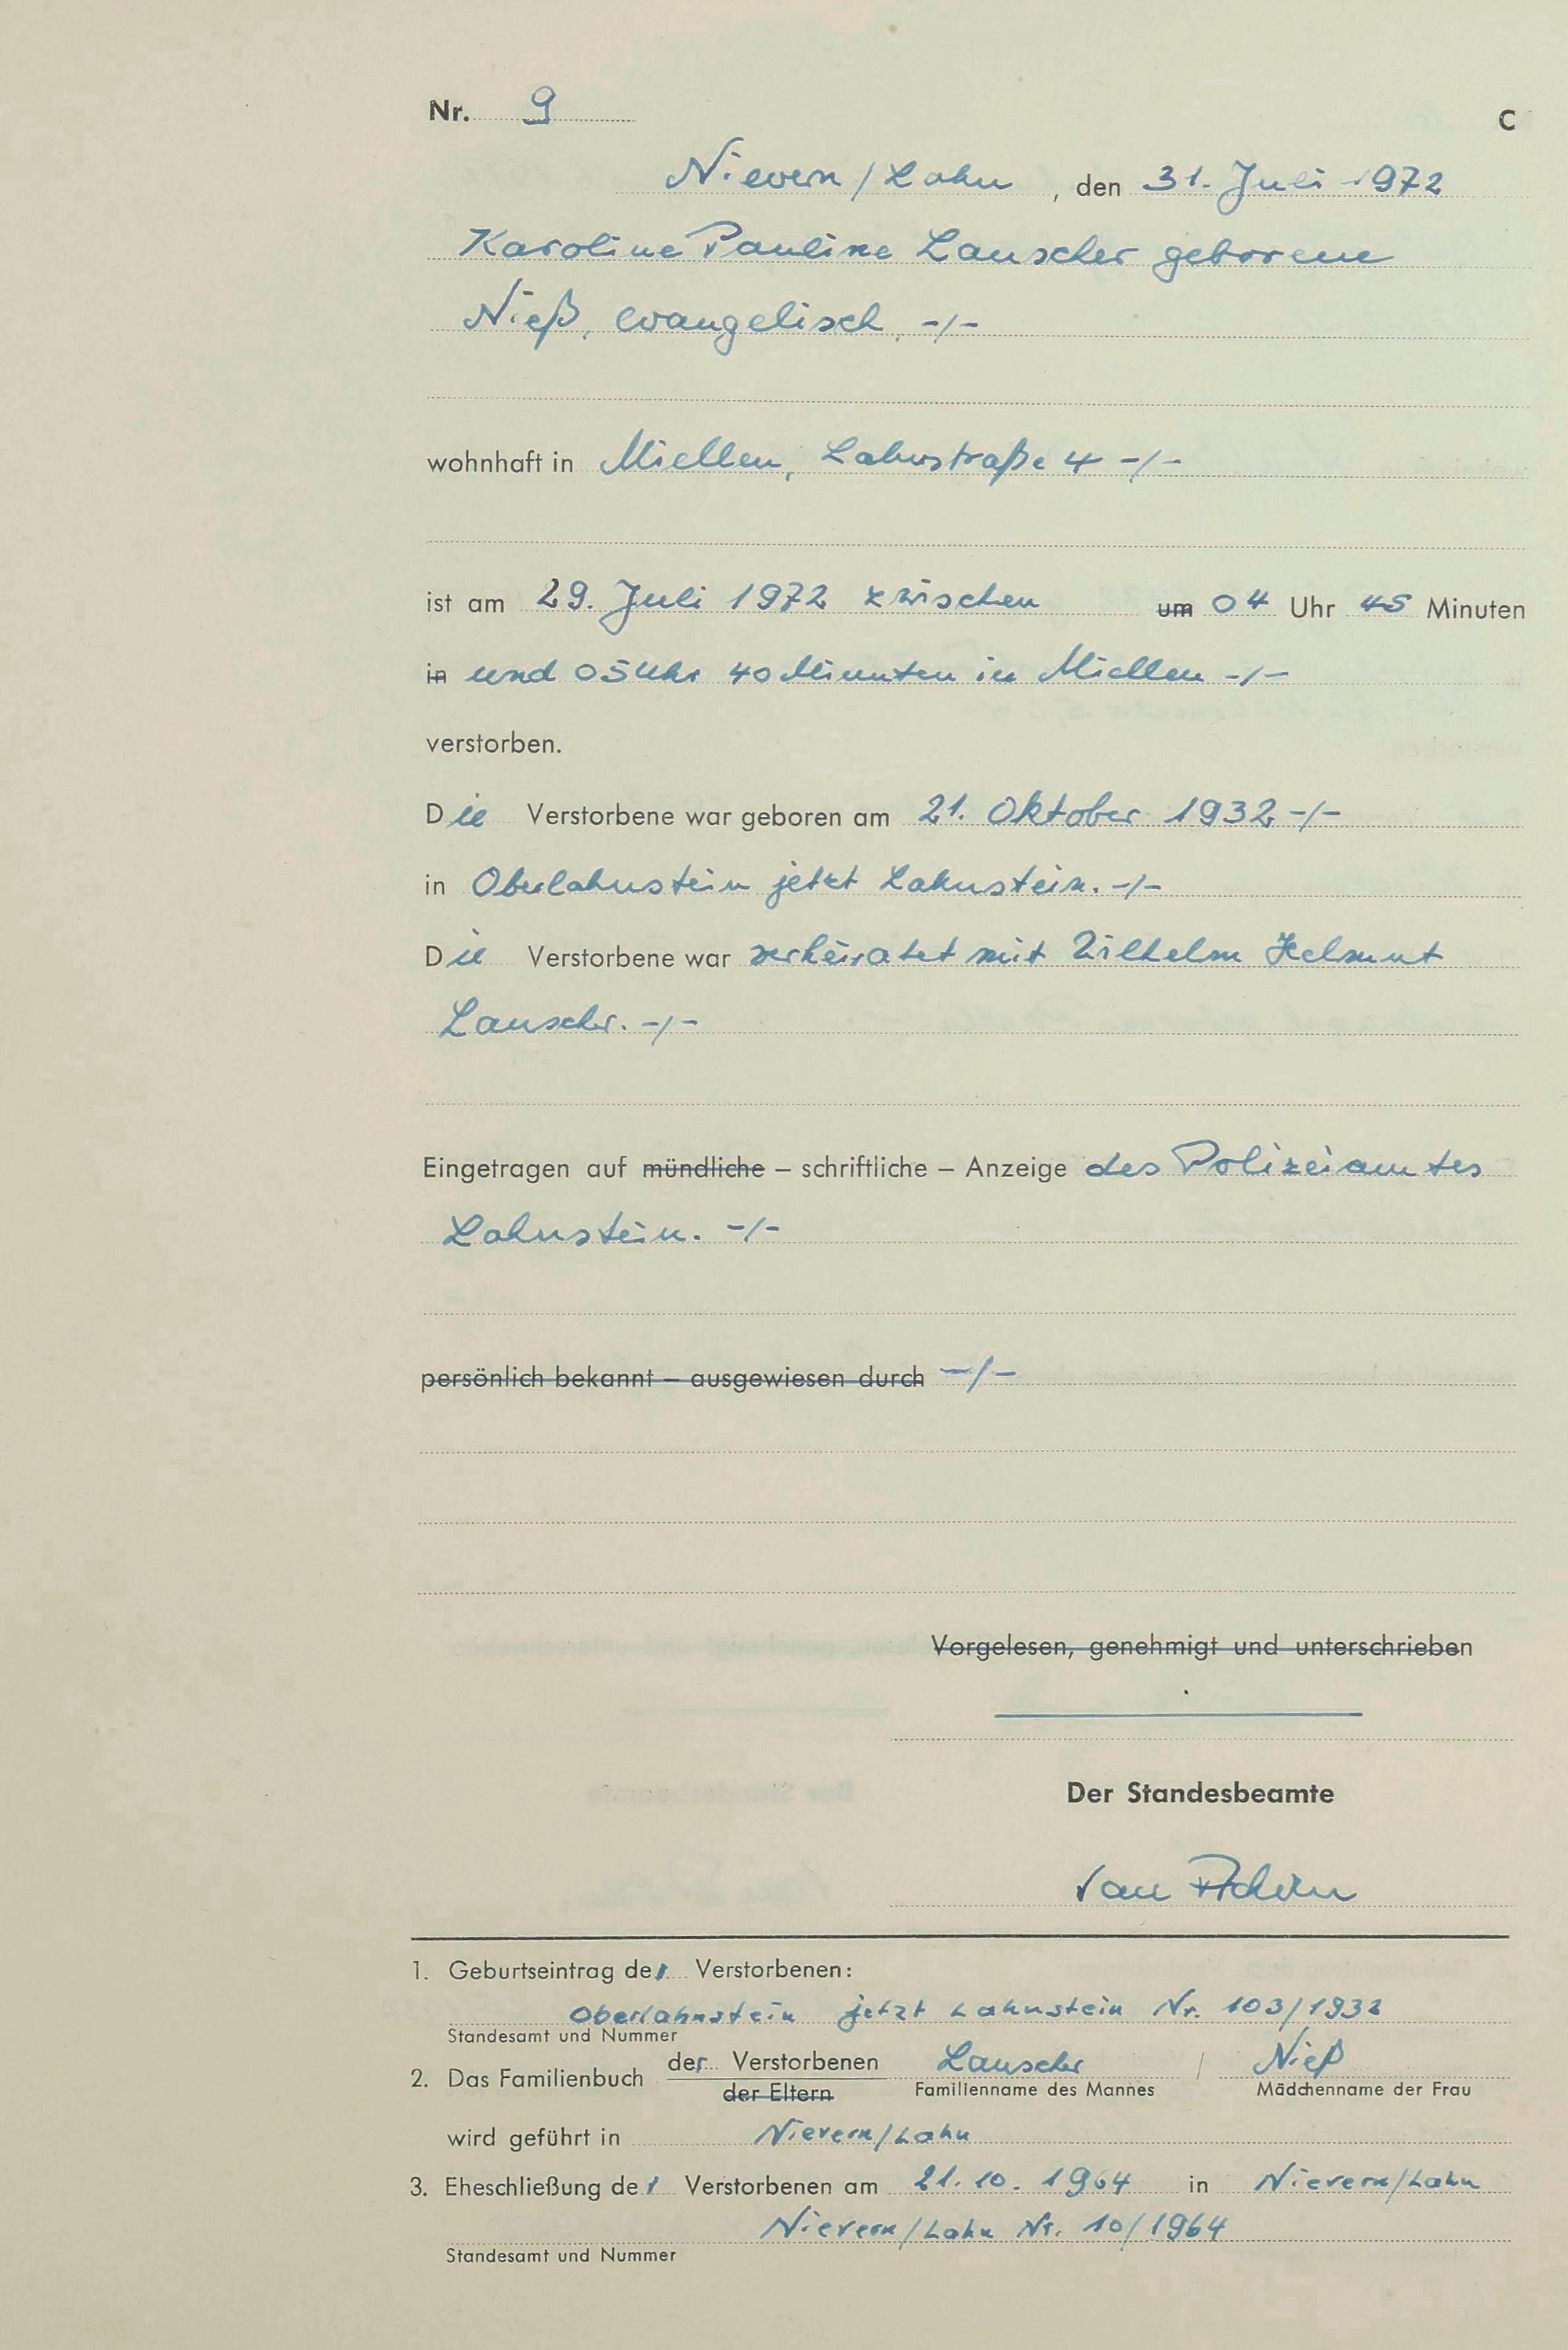 Nr. 9
C
Nievern / Lahn , den 31. Juli 1972
Karoline Pauline Lauscher geborene
Nieß, evangelisch, -/-
wohnhaft in Miellen, Lahnstraße 4 -/-
ist am 29. Juli 1972 zwischen um 04 Uhr 45 Minuten
in und 05 Uhr 40 Minuten in Miellen -/-
verstorben.
Die Verstorbene war geboren am 21. Oktober 1932 -/-
in Oberlahnstein jetzt Lahnstein. -/-
Die Verstorbene war verheiratet mit Wilhelm Helmut
Lauscher. -/-
Eingetragen auf mündliche – schriftliche – Anzeige des Polizeiamtes
Lahnstein. -/-
persönlich bekannt – ausgewiesen durch -/-
Vorgelesen, genehmigt und unterschrieben
Der Standesbeamte
1. Geburtseintrag der Verstorbenen:
Oberlahnstein jetzt Lahnstein Nr. 103/1932
Standesamt und Nummer
2. Das Familienbuch der Verstorbenen Lauscher / Nieß
der Eltern Familienname des Mannes Mädchenname der Frau
wird geführt in Nievern/Lahn
3. Eheschließung der Verstorbenen am 21. 10. 1964 in Nievern/Lahn
Nievern/Lahn Nr. 10/1964
Standesamt und Nummer